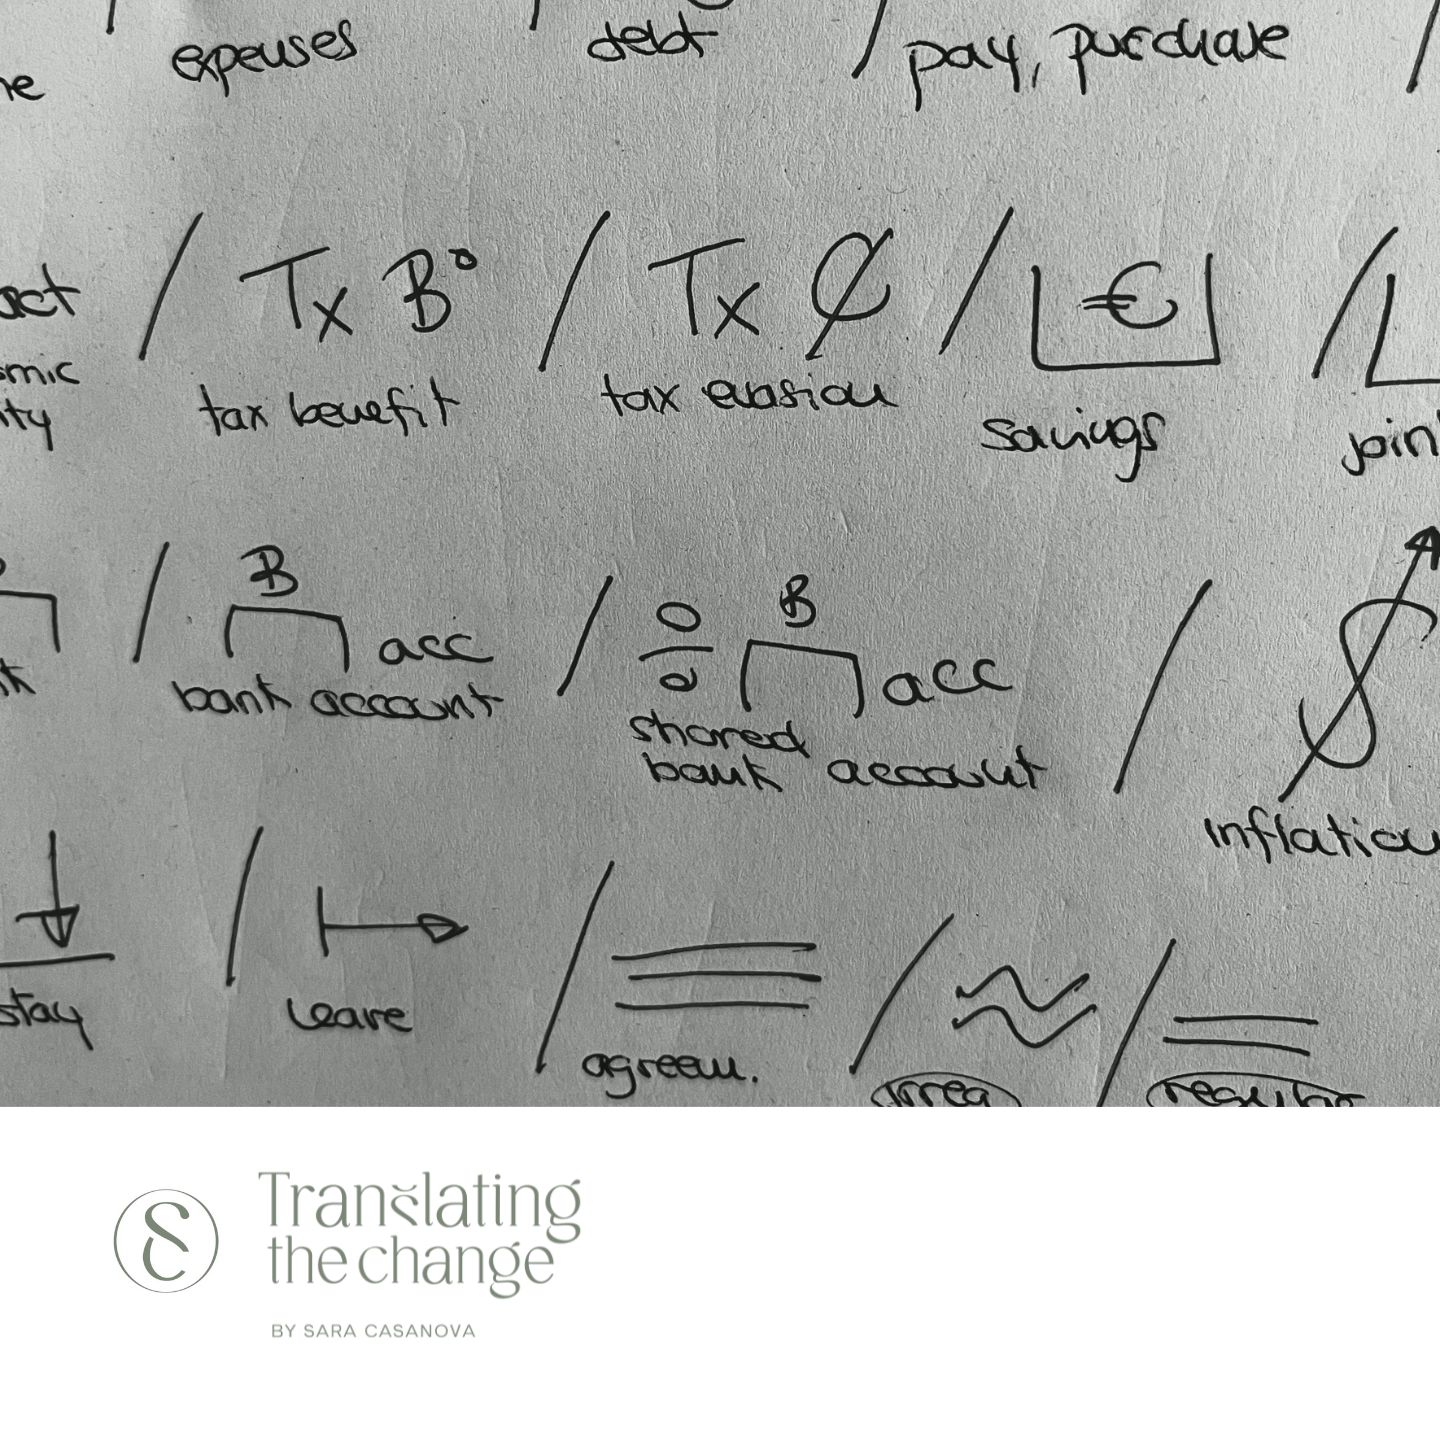 expenses debt pay, purchase
Tx B° Tx ₡ €
tax benefit tax evasion savings
B acc B acc
bank account shared
bank account
inflation
stay leave agreem.
irreg regular
Translating
the change
BY SARA CASANOVA